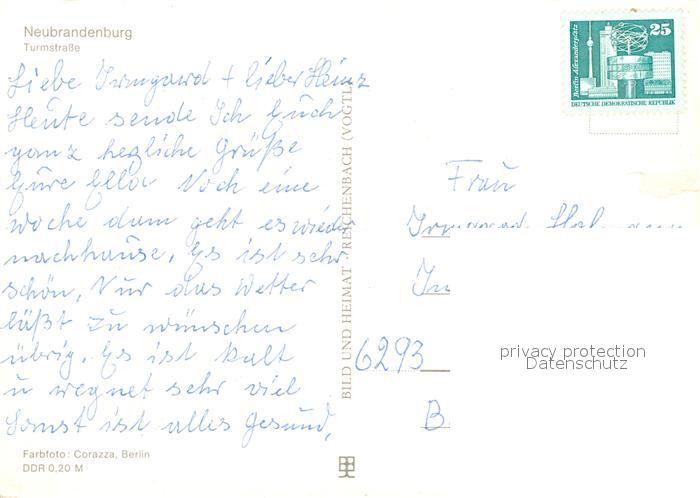 Neubrandenburg
Turmstraße
Liebe Irmgard + lieber Heinz
Heute sende Ich Euch
ganz hezliche Grüße
Eure Ella Noch eine
woche dann geht es wieder
nachhause, Es ist sehr
schön, Nur das Wetter
läßt zu wünschen
übrig. Es ist kalt
u regnet sehr viel
Sonst ist alles Gesund,
Farbfoto: Corazza, Berlin
DDR 0,20 M
BILD UND HEIMAT REICHENBACH (VOGTL
Berlin, Alexanderplatz
25
DEUTSCHE DEMOKRATISCHE REPUBLIK
Frau
6293
B
privacy protection
Datenschutz